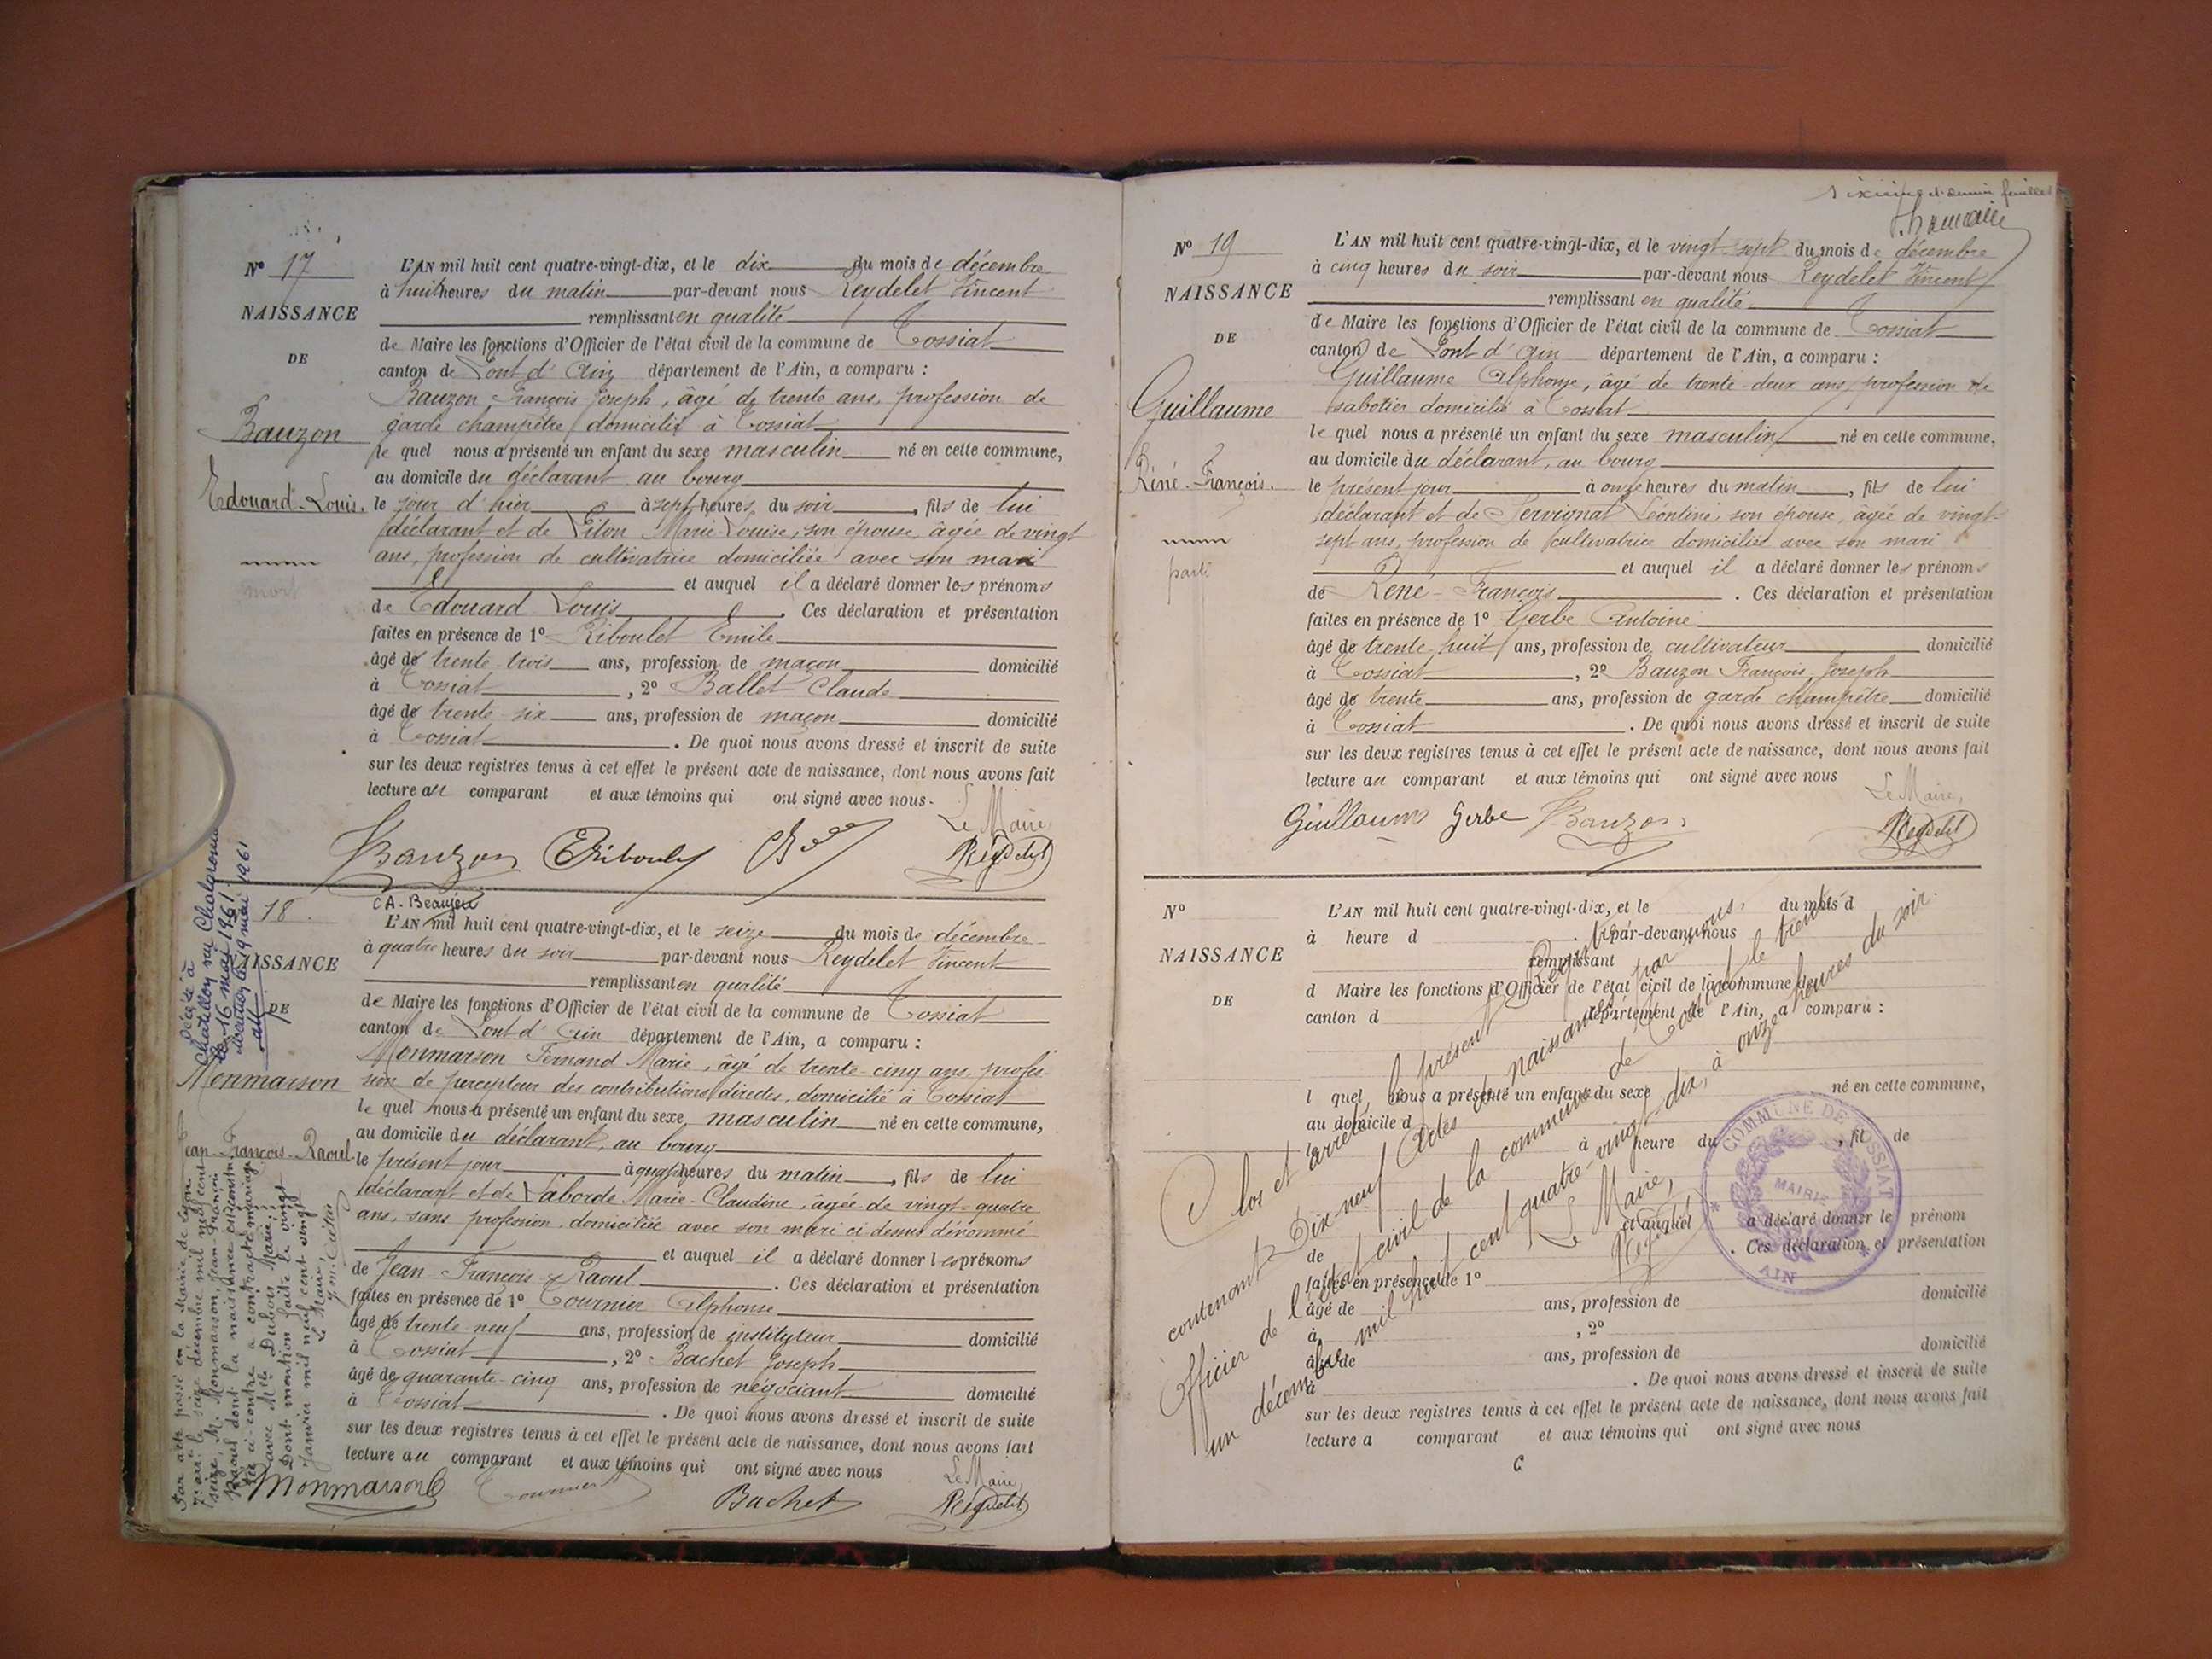 N° 17
NAISSANCE
DE
Bauzon
Edouard-Louis.
mort
L'AN mil huit cent quatre-vingt-dix, et le dix du mois de décembre
à huit heures du matin par-devant nous Reydelet Vincent
remplissant en qualité
de Maire les fonctions d'Officier de l'état civil de la commune de Tossiat
canton de Pont d'Ain département de l'Ain, a comparu :
Bauzon François Joseph, âgé de trente ans, profession de
garde champêtre domicilié à Tossiat
le quel nous a présenté un enfant du sexe masculin né en cette commune,
au domicile du déclarant au bourg
le jour d'hier à sept heures du soir, fils de lui
déclarant et de Piton Marie Louise, son épouse, âgée de vingt
ans, profession de cultivatrice domiciliée avec son mari
et auquel il a déclaré donner les prénoms
de Edouard Louis. Ces déclaration et présentation
faites en présence de 1° Riboulet Emile
âgé de trente trois ans, profession de maçon domicilié
à Tossiat, 2° Ballet Claude
âgé de trente six ans, profession de maçon domicilié
à Tossiat. De quoi nous avons dressé et inscrit de suite
sur les deux registres tenus à cet effet le présent acte de naissance, dont nous avons fait
lecture au comparant et aux témoins qui ont signé avec nous.
Le Maire,
Bauzon Reydelet
18.
NAISSANCE
DE
Monmarson
Jean-François-Raoul
Décédé à
Chatillon sur Chalaronne
le 16 mai 1961
19 mai 1961
CA. Beaujeu
L'AN mil huit cent quatre-vingt-dix, et le seize du mois de décembre
à quatre heures du soir par-devant nous Reydelet Vincent
remplissant en qualité
de Maire les fonctions d'Officier de l'état civil de la commune de Tossiat
canton de Pont d'Ain département de l'Ain, a comparu :
Monmarson Fernand Marie, âgé de trente-cinq ans, profes
sion de percepteur des contributions directes, domicilié à Tossiat
le quel nous a présenté un enfant du sexe masculin né en cette commune,
au domicile du déclarant, au bourg
le présent jour à quatre heures du matin, fils de lui
déclarant et de Laborde Marie-Claudine, âgée de vingt-quatre
ans, sans profession, domiciliée avec son mari ci dessus dénommé
et auquel il a déclaré donner les prénoms
de Jean-François-Raoul. Ces déclaration et présentation
faites en présence de 1° Tournier Alphonse
âgé de trente-neuf ans, profession de instituteur domicilié
à Tossiat, 2° Bachet Joseph
âgé de quarante-cinq ans, profession de négociant domicilié
à Tossiat. De quoi nous avons dressé et inscrit de suite
sur les deux registres tenus à cet effet le présent acte de naissance, dont nous avons fait
lecture au comparant et aux témoins qui ont signé avec nous
Le Maire,
Monmarson Tournier Bachet Reydelet
Par acte passé en la Mairie de Lyon
le seize décembre mil neuf cent
seize, M. Monmarson, Jean François
Raoul dont la naissance est constatée
ci-contre a contracté mariage
avec Mlle Dubois Marie
Dont mention faite le vingt
Janvier mil neuf cent vingt
Le Maire,
Sixième et dernier feuillet
N° 19
NAISSANCE
DE
Guillaume
Réné-François.
parti
L'AN mil huit cent quatre-vingt-dix, et le vingt-sept du mois de décembre
à cinq heures du soir par-devant nous Reydelet Vincent
remplissant en qualité
de Maire les fonctions d'Officier de l'état civil de la commune de Tossiat
canton de Pont d'Ain département de l'Ain, a comparu :
Guillaume Alphonse, âgé de trente-deux ans, profession de
sabotier domicilié à Tossiat
le quel nous a présenté un enfant du sexe masculin né en cette commune,
au domicile du déclarant, au bourg
le présent jour à onze heures du matin, fils de lui
déclarant et de Servignat Léontine, son épouse, âgée de vingt-
sept ans, profession de cultivatrice domiciliée avec son mari
et auquel il a déclaré donner les prénoms
de René-François. Ces déclaration et présentation
faites en présence de 1° Gerbe Antoine
âgé de trente huit ans, profession de cultivateur domicilié
à Tossiat, 2° Bauzon François Joseph
âgé de trente ans, profession de garde champêtre domicilié
à Tossiat. De quoi nous avons dressé et inscrit de suite
sur les deux registres tenus à cet effet le présent acte de naissance, dont nous avons fait
lecture au comparant et aux témoins qui ont signé avec nous
Le Maire,
Guillaume Gerbe Bauzon Reydelet
N°
NAISSANCE
DE
L'AN mil huit cent quatre-vingt-dix, et le du mois d
à heure d par-devant nous
remplissant
d Maire les fonctions d'Officier de l'état civil de la commune d
canton d département de l'Ain, a comparu :
l quel nous a présenté un enfant du sexe né en cette commune,
au domicile d
le à heure du, fil de
et auquel a déclaré donner le prénom
de. Ces déclaration et présentation
faites en présence de 1°
âgé de ans, profession de domicilié
à, 2°
âgé de ans, profession de domicilié
à. De quoi nous avons dressé et inscrit de suite
sur les deux registres tenus à cet effet le présent acte de naissance, dont nous avons fait
lecture a comparant et aux témoins qui ont signé avec nous
Clos et arrêté le présent Registre
contenant Dix-neuf Actes de naissances, par nous,
Officier de l'état civil de la commune de Tossiat le trente
un décembre mil huit cent quatre-vingt-dix, à onze heures du soir.
Le Maire,
Reydelet
COMMUNE DE TOSSIAT
MAIRIE
AIN